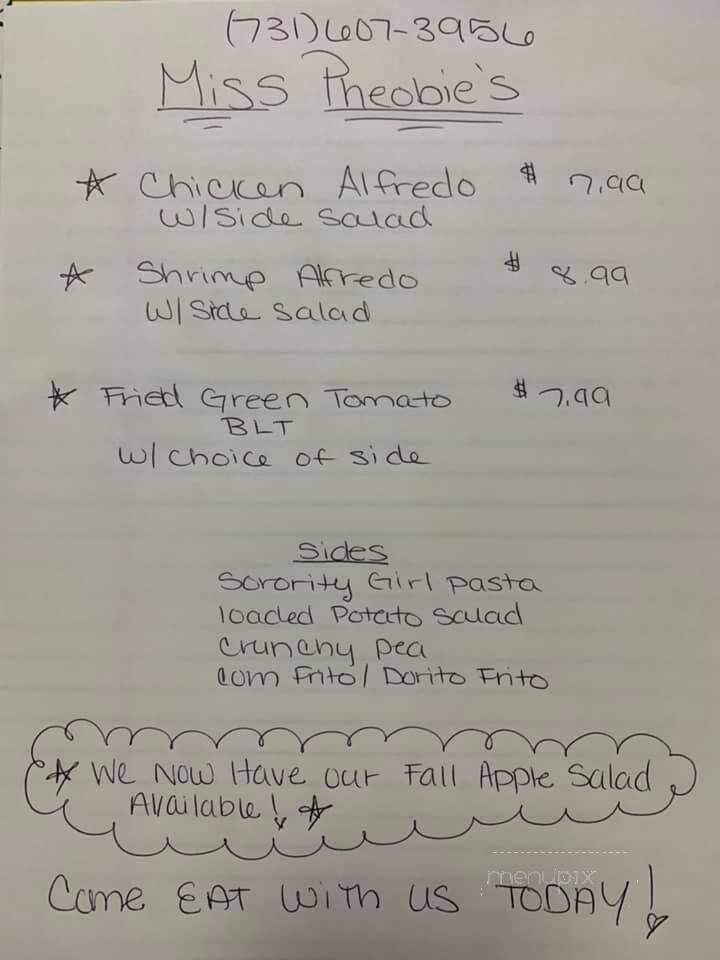 (731)607-3956
Miss Pheobie's
☆ Chicken Alfredo $ 7.99
w/side salad
☆ Shrimp Alfredo $ 8.99
w/side salad
☆ Fried Green Tomato $7.99
BLT
w/ choice of side
Sides
Sorority Girl Pasta
loaded Potato Salad
Crunchy pea
Corn Frito/ Dorito Frito
☆ We Now Have our Fall Apple Salad
Available! ☆
menupix
Come EAT With us TODAY!